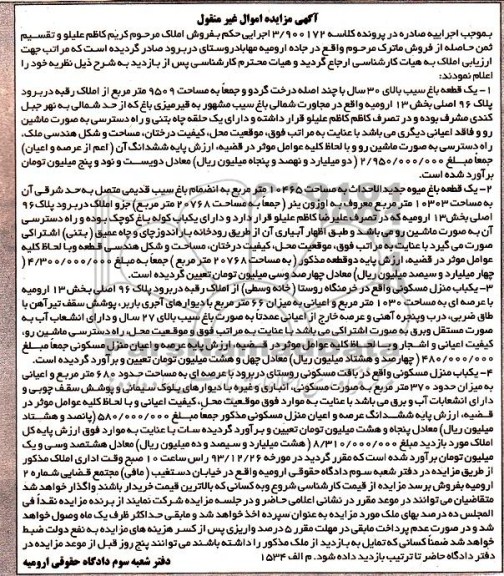 آگهی مزایده اموال غیر منقول
بموجب اجراییه صادره در پرونده کلاسه ۳/۹۰۰۱۷۲ اجرایی حکم بفروش املاک مرحوم کریم کاظم علیلو و تقسیم
ثمن حاصله از فروش ماترک مرحوم واقع در جاده ارومیه مهاباد روستای دربرود صادر گردیده است که مراتب جهت
ارزیابی املاک به هیات کارشناسی ارجاع گردید و هیات محترم کارشناسی پس از بازدید به شرح ذیل نظریه خود را
اعلام نمودند:
۱- یک قطعه باغ سیب بالای ۳۰ سال با چند اصله درخت گردو و جمعاً به مساحت ۹۵۰۹ متر مربع از املاک رقبه دربرود
پلاک ۹۶ اصلی بخش ۱۳ ارومیه واقع در مجاورت شمالی باغ سیب مشهور به قیرمیزی باغ که از حد شمالی به نهر جبل
کندی مشرف بوده و در تصرف کاظم کاظم علیلو قرار داشته و دارای یک حلقه چاه بتنی و راه دسترسی به صورت ماشین
رو و فاقد اعیانی دیگری می باشد با عنایت به مراتب فوق، موقعیت محل، کیفیت درختان، مساحت و شکل هندسی ملک،
راه دسترسی به صورت ماشین رو و با لحاظ کلیه عوامل موثر در قضیه، ارزش پایه ششدانگ آن (اعم از عرصه و اعیان)
جمعاً مبلغ ۲/۹۵۰/۰۰۰/۰۰۰ (دو میلیارد و نهصد و پنجاه میلیون ریال) معادل دویست و نود و پنج میلیون تومان
برآورد شده است.
۲- یک قطعه باغ میوه جدید الاحداث به مساحت ۱۰۴۶۵ متر مربع به انضمام باغ سیب قدیمی متصل به حد شرقی آن
به مساحت ۱۰۳۰۳ متر مربع معروف به اوزون یئر (جمعاً به مساحت ۲۰۷۶۸ متر مربع) جزو املاک دربرود پلاک ۹۶
اصلی بخش ۱۳ ارومیه که در تصرف علیرضا کاظم علیلو قرار دارد و دارای یکباب کوله باغ کوچک بوده و راه دسترسی
آن به صورت ماشین رو می باشد و طبق اظهار آبیاری آن از طریق رودخانه باراندوزچای و چاه عمیق (بتنی) اشتراکی
صورت می گیرد با عنایت به مراتب فوق، موقعیت محل، کیفیت درختان، مساحت و شکل هندسی قطعه و با لحاظ کلیه
عوامل موثر در قضیه، ارزش پایه دو قطعه مذکور (به مساحت ۲۰۷۶۸ متر مربع) جمعاً به مبلغ ۴/۳۰۰/۰۰۰/۰۰۰ (
چهار میلیارد و سیصد میلیون ریال) معادل چهارصد وسی میلیون تومان تعیین گردیده است.
۳- یکباب منزل مسکونی واقع در خرمنگاه روستا (خانه وسطی) از املاک رقبه دربرود پلاک ۹۶ اصلی بخش ۱۳ ارومیه
با عرصه ای به مساحت ۱۰۳۰ متر مربع و اعیانی به میزان ۶۶ متر مربع با دیوارهای آجری باربر، پوشش سقف تیرآهن با
طاق ضربی، درب و پنجره آهنی و عرصه خارج از اعیان عمدتاً به صورت باغ سیب بالای ۲۷ سال و دارای انشعاب آب به
صورت مستقل و برق به صورت اشتراکی می باشد با عنایت به مراتب فوق و موقعیت محل، راه دسترسی ماشین رو،
کیفیت اعیانی و اشجار و با لحاظ کلیه عوامل موثر در قضیه، ارزش پایه عرصه و اعیان منزل مسکونی جمعاً مبلغ
۴۸۰/۰۰۰/۰۰۰ (چهارصد و هشتاد میلیون ریال) معادل چهل و هشت میلیون تومان تعیین و برآورد گردیده است.
۴- یکباب منزل مسکونی واقع در بافت مسکونی روستای دربرود با عرصه ای به مساحت حدود ۶۸۰ متر مربع و اعیانی
به میزان حدود ۳۷۰ متر مربع به صورت مسکونی، انباری و غیره با دیوارهای بلوک سیمانی و پوشش سقف چوبی و
دارای انشعابات آب و برق می باشد با عنایت به موارد فوق موقعیت محل، کیفیت اعیانی و با لحاظ کلیه عوامل موثر در
قضیه، ارزش پایه ششدانگ عرصه و اعیان منزل مسکونی مذکور جمعاً مبلغ ۵۸۰/۰۰۰/۰۰۰ (پانصد و هشتاد
میلیون ریال) معادل پنجاه و هشت میلیون تومان تعیین و برآورد گردیده ست با عنایت به موارد فوق ارزش پایه کل
املاک مورد بازدید مبلغ ۸/۳۱۰/۰۰۰/۰۰۰ (هشت میلیارد و سیصد و ده میلیون ریال) معادل هشتصد وسی و یک
میلیون تومان برآورد شده است که مقرر گردید در مورخه ۹۳/۱۲/۲۶ راس ساعت ۱۰ صبح وقت اداری املاک مذکور
از طریق مزایده در دفتر شعبه سوم دادگاه حقوقی ارومیه واقع در خیابان دستغیب (مافی) مجتمع قضایی شماره ۲
ارومیه بفروش برسد مزایده از قیمت کارشناسی شروع وبه کسانی که بالاترین قیمت خریدار باشند واگذار خواهد شد
متقاضیان می توانند در موعد مقرر در نشانی اعلامی حاضر و در جلسه مزایده شرکت نمایند از برنده مزایده نقداً فی
المجلس ده درصد بهای ملک مورد مزایده به عنوان سپرده اخذ خواهد شد و مابقی حداکثر ظرف یک ماه وصول خواهد
شد و در صورت عدم پرداخت مابقی در مهلت مقرر ۵ درصد واریزی پس از کسر هزینه های مزایده به نفع دولت ضبط
خواهد شد ضمناً کسانی که تمایل به بازدید از ملک مذکور را داشته باشند می توانند پنج روز قبل از موعد مزایده در
دفتر دادگاه حاضر تا ترتیب بازدید داده شود. م الف ۱۵۳۴
دفتر شعبه سوم دادگاه حقوقی ارومیه